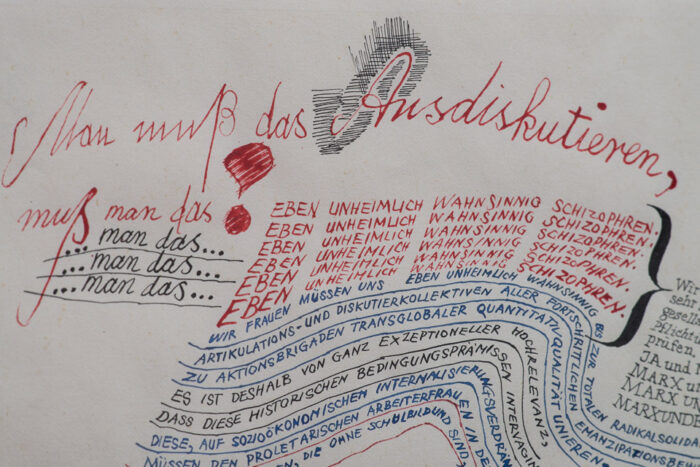 Man muß das Ausdiskutieren,
muß man das!
... man das...
... man das...
... man das...
EBEN UNHEIMLICH WAHNSINNIG SCHIZOPHREN.
EBEN UNHEIMLICH WAHNSINNIG SCHIZOPHREN.
EBEN UNHEIMLICH WAHNSINNIG SCHIZOPHREN.
EBEN UNHEIMLICH WAHNSINNIG SCHIZOPHREN.
EBEN UNHEIMLICH WAHNSINNIG SCHIZOPHREN.
WIR FRAUEN MÜSSEN UNS EBEN UNHEIMLICH WAHNSINNIG BIS ZUR TOTALEN RADIKALSOLIDA
ARTIKULATIONS- UND DISKUTIERKOLLEKTIVEN ALLER FORTSCHRITTLICHEN EMANZIPATIONSBE
ZU AKTIONSBRIGADEN TRANSGLOBALER QUANTITATIV QUALITÄT UNIEREN
ES IST DESHALB VON GANZ EXZEPTIONELLER HOCHRELEVANZ,
DASS DIESE HISTORISCHEN BEDINGUNGSPRÄMISSEN
DIESE, AUF SOZIOÖKONOMISCHEN INTERNALISIERUNGSVERDRÄN
MÜSSEN DEN PROLETARISCHEN ARBEITERFRAU IN DE
EN, DIE OHNE SCHULBILDUNG SIND
Wir
seh
gesel
Pflicht
prüfen
JA und N
MARX u
MARX UN
MARXUND